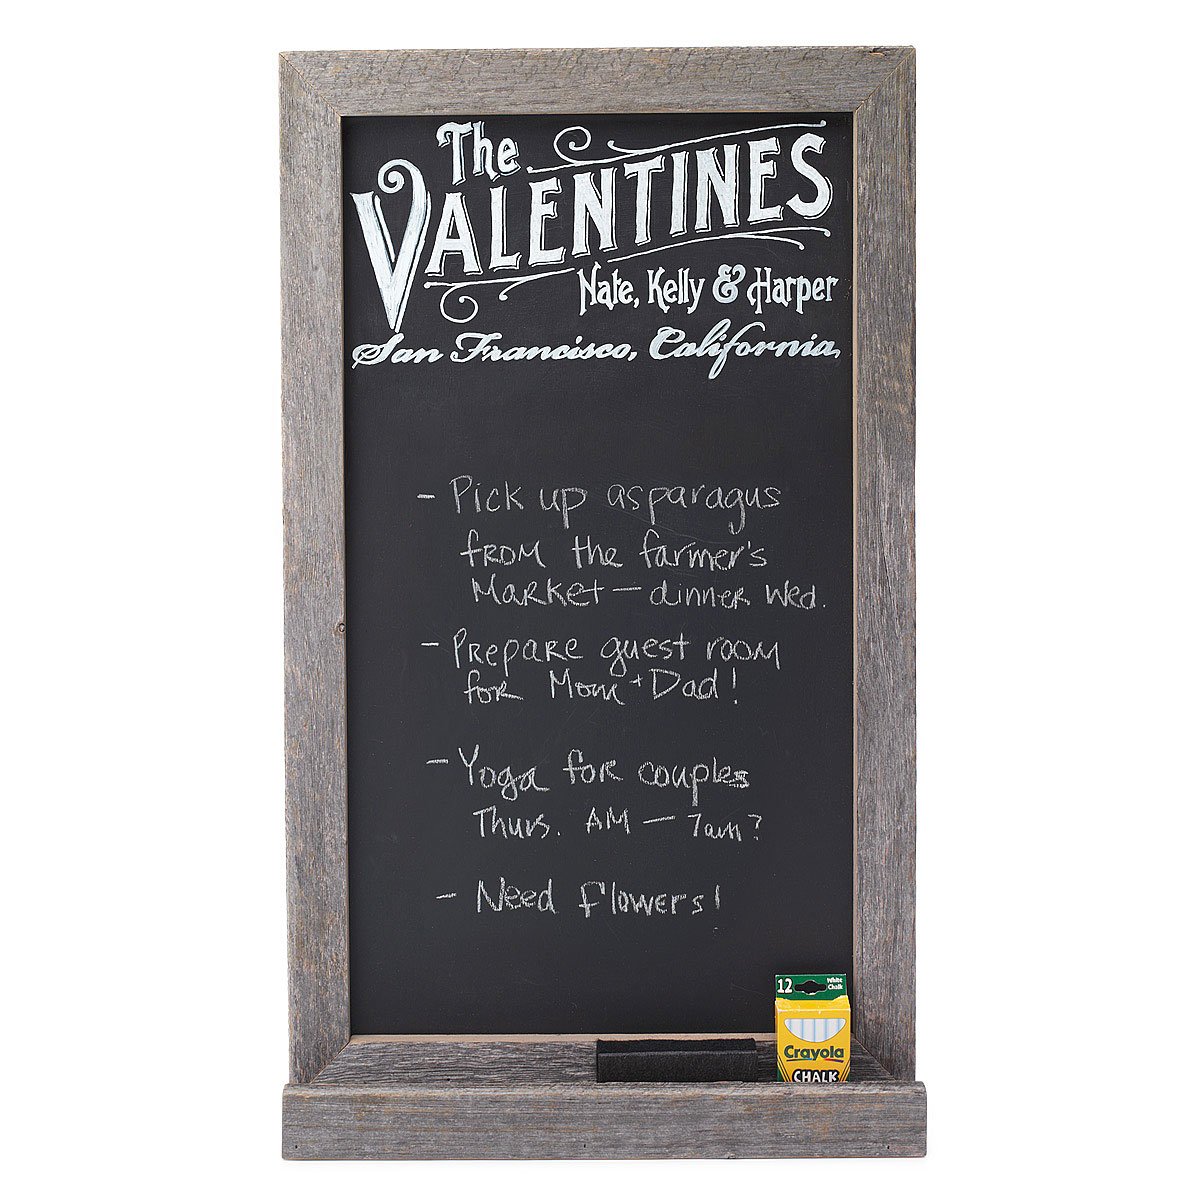 The
VALENTINES
Nate, Kelly & Harper
San Francisco, California
- Pick up asparagus
from the farmer's
Market — dinner Wed.
- Prepare guest room
for Mom + Dad!
- Yoga for couples
Thurs. AM — 7am?
- Need flowers!
12
White
Chalk
Crayola
CHALK